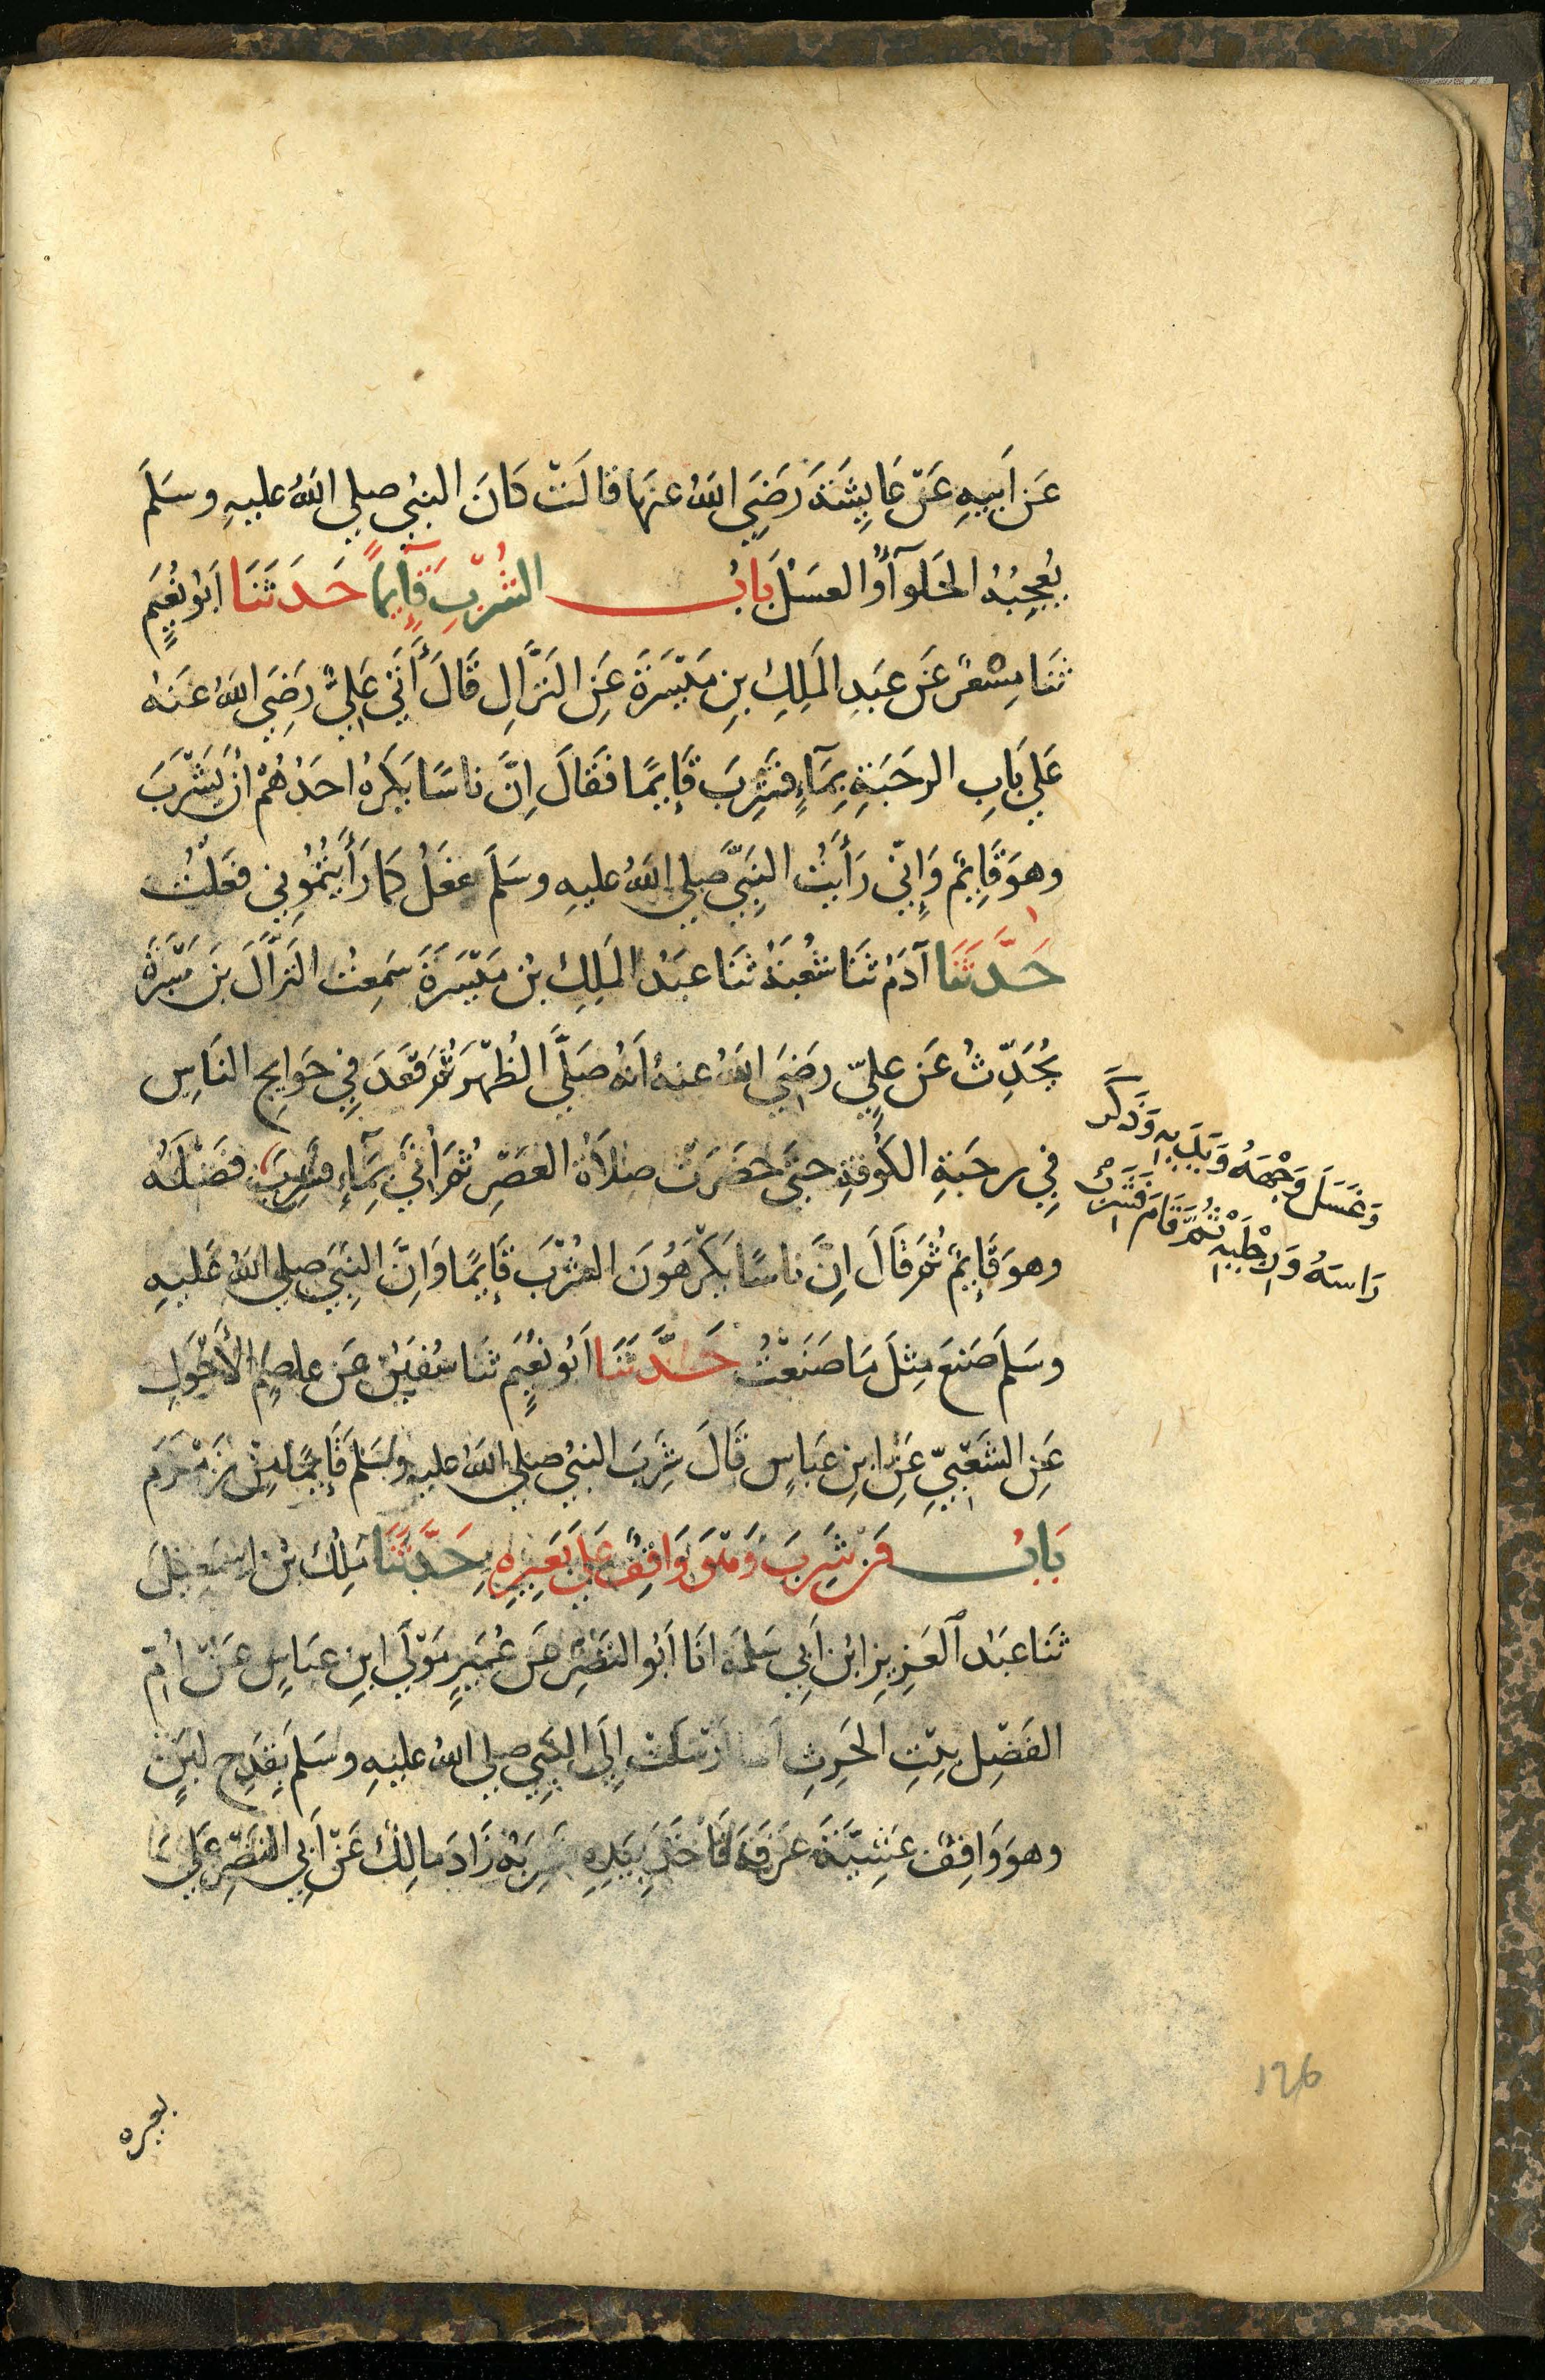 عَن اَبِيهِ عَنْ عَايِشَةَ رَضِيَ اللهُ عنهَا قالَتْ كَانَ النبيُ صلي اللهُ عليهِ وسَلمَ
يُعجِبُهُ الحَلوآءُ والعسَلُ بابُ الشُرْبِ قَآيِماً حَدثَنَا اَبُو نُعَيمٍ
ثَنَا مِسْعَرٌ عَن عَبدِ المَلِكِ بنِ مَيْسَرَةَ عَنِ النَزَّالِ قَالَ أَتَي عَلِيٌّ رَضِيَ اللهُ عَنهُ
عَلي بَابِ الرحَبَةِ بِمَآءٍ فشَرِبَ قَايِمًا فَقَالَ اِنَّ ناسًا يَكرَهُ احَدُهُمْ أنْ يَشْرَبَ
وهوَ قَايِمٌ وَاِنِّي رَأَيتُ النبِيَّ صَلي اللهُ عليهِ وسَلمَ فعَلَ كمَا رَأَيتُمُونِي فعَلْتُ
حَدَّثَنَا آدَمُ ثنَا شُعْبَةُ ثنَا عبَدُ المَلِكِ بْنُ مَيْسَرَةَ سَمِعتُ النزَّالَ بنَ سَبْرَةَ
يُحَدِّثُ عَن عليٍّ رضِيَ اللهُ عنهُ اَنهُ صَلَّي الظُهْرَ ثُمَ قعَدَ فِي حَوَايِجِ النَاسِ
فِي رحَبَةِ الكُوفةِ حتيَ حضَرَتْ صلَاةُ العَصْرِ ثُمَ اُتيَ بِمَآءٍ فشَرِبَ فضْلَهُ
وَغَسَلَ وَجْهَهُ وَيَدَيهِ وَذَكَرَ
رَاسَهُ وَرِجْلَيْهِ ثُمَّ قَامَ فَشَرِبَ
وهوَ قَايِمٌ ثُمَ قَالَ اِنَّ ناسًا يَكْرَهُونَ الشُرْبَ قَايِمًا وَاِنَّ النبِيَ صلي اللهُ عَليهِ
وسَلمَ صَنعَ مِثلَ مَا صَنَعْتُ حَدَّثَنَا اَبُو نُعَيمٍ ثنَا سُفيٰنُ عَن عاصِمٍ الأَحْوَلِ
عَنِ الشَعْبِيِّ عَنِ ابنِ عبَاسٍ قَالَ شَرِبَ النبيُ صلي اللهُ عليهِ وسَلمَ قَايِمًا مِنْ زَمْزَمَ
بَابُ مَنْ شَرِبَ وَهْوَ وَاقِفٌ عَلَي بَعِيرِهِ حَدَّثَنَا مٰلِكُ بْنُ اِسمٰعِيلَ
ثَنَا عبَدُ العَزِيزِ ابْنُ اَبِي سَلمَةَ انَا اَبُو النَضْرِ عَن عُمَيرٍ مَوْلَي ابنِ عبَاسٍ عَنْ اُمِّ
الفَضْلِ بِنْتِ الحٰرِثِ اَنهَا اَرْسَلَتْ اِلَي النبِيِ صلي اللهُ عليهِ وسَلمَ بِقَدَحِ لبَنٍ
وهوَ وَاقِفٌ عَشِيَّةَ عَرَفةَ فَاَخَذَ بِيَدِهِ فشَرِبَهُ زَادَ مالِكٌ عَنْ اَبِي النَضْرِ عَلي
بعيره
126